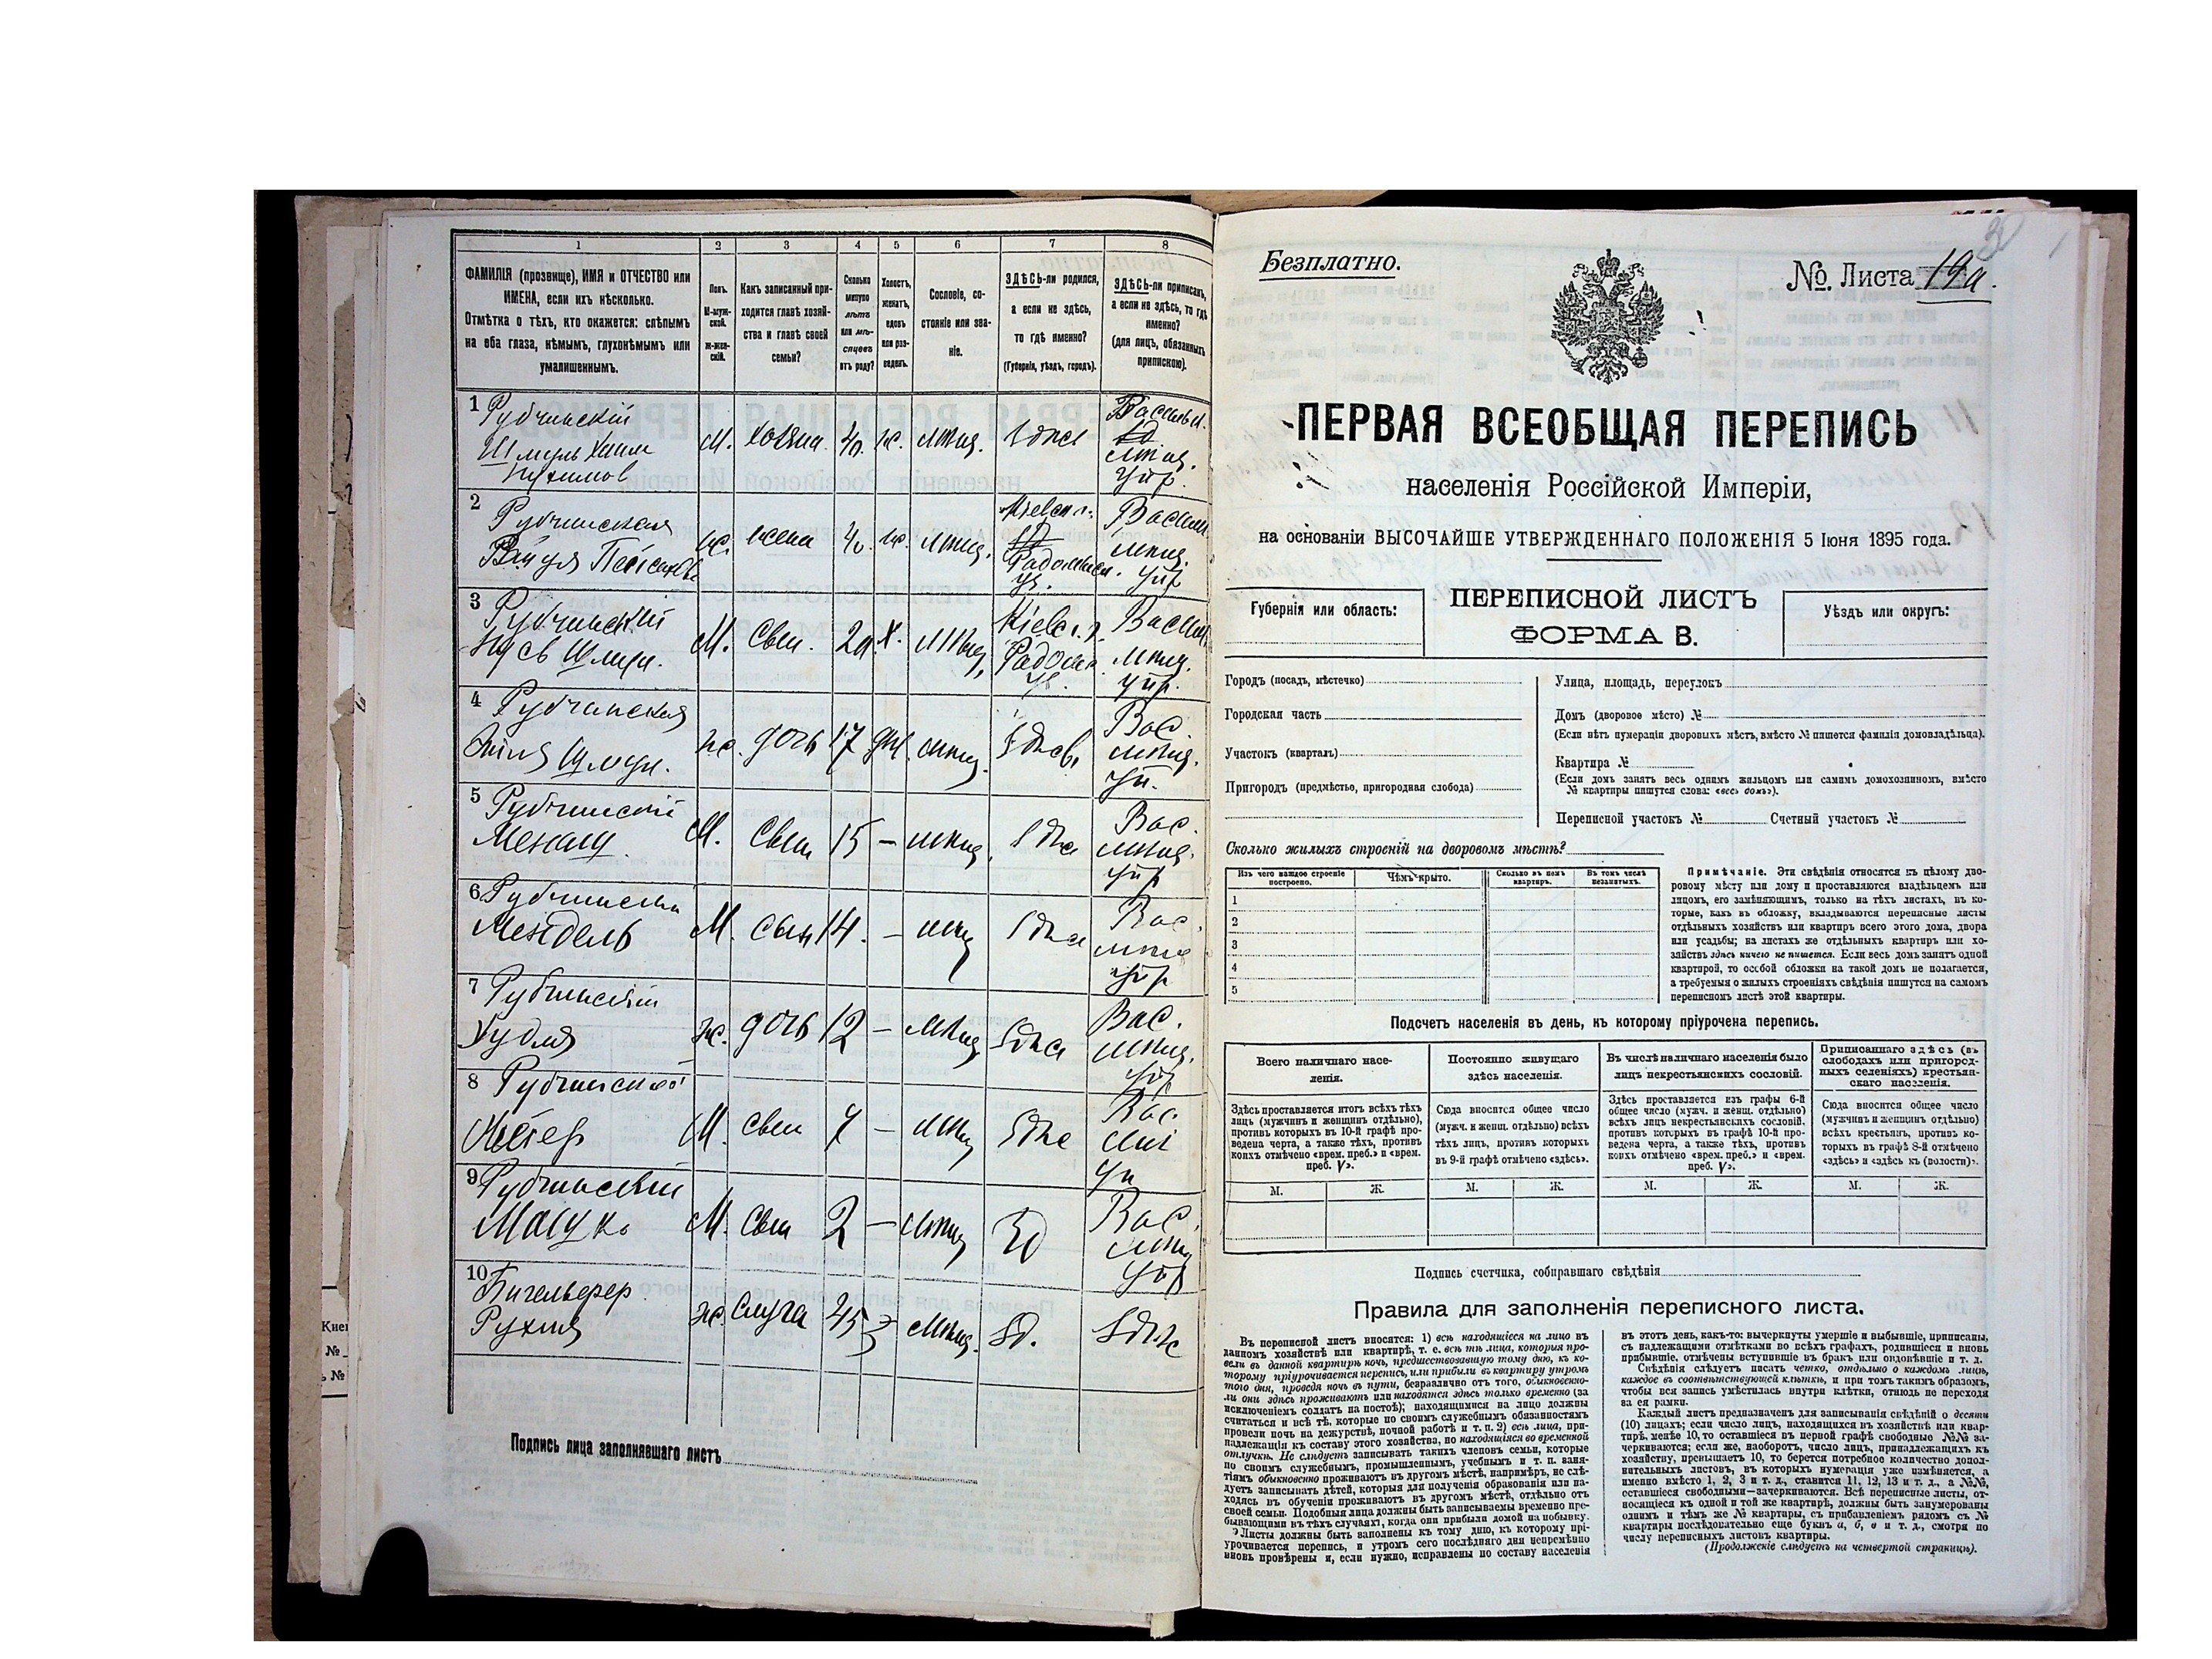 1 2 3 4 5 6 7 8
ФАМИЛІЯ (прозвище), ИМЯ и ОТЧЕСТВО или
ИМЕНА, если ихъ нѣсколько.
Отмѣтка о тѣхъ, кто окажется: слѣпымъ
на оба глаза, нѣмымъ, глухонѣмымъ или
умалишеннымъ.
Полъ.
М-муж-
ской.
Ж-жен-
скій.
Какъ записанный при-
ходится главѣ хозяй-
ства и главѣ своей
семьи?
Сколько
минуло
лѣтъ
или мѣ-
сяцевъ
отъ роду?
Холостъ,
женатъ,
вдовъ
или раз-
веденъ.
Сословіе, со-
стояніе или зва-
ніе.
ЗДѢСЬ-ли родился,
а если не здѣсь,
то гдѣ именно?
(Губернія, уѣздъ, городъ).
ЗДѢСЬ-ли приписанъ,
а если не здѣсь, то гдѣ
именно?
(для лицъ, обязанныхъ
припискою).
1 Рубчинскій
Шмуль Хаим
М. хозяин. 40. ж. мѣщ.
мѣщ.
упр.
2 Рубчинская
ж. жена 40. мѣщ.
Радомысл.
у.
мѣщ.
упр
3 Рубчинскій
Нусь Шмул.
М. Сын. Х. мѣщ.
мѣщ.
упр.
4 Рубчинская
Шмул.
ж. дочь 17 мѣщ.
Вас.
мѣщ.
уп.
5 Рубчинскій
Менаш
М. Сын 15 — мѣщ.
Вас.
мѣщ.
упр
6 Рубчински
Мендель
М. Сын 14. — мѣщ
Вас.
упр
7 Рубчинскій
Худля
ж. дочь 12 — мѣщ
Вас.
мѣщ.
упр
8 Рубчинской
М. Сын 7 — мѣщ
Вас.
уп
9 Рубчинскій
М. Сын 2 — мѣщ
Зд
Вас.
мѣщ
упр
10 Бигельферер
Рухля
ж. Слуга 45 мѣщ. Зд.
Подпись лица заполнявшаго листъ
Кіев
№
№
Безплатно.
№. Листа 19а.
ПЕРВАЯ ВСЕОБЩАЯ ПЕРЕПИСЬ
населенія Россійской Имперіи,
на основаніи ВЫСОЧАЙШЕ УТВЕРЖДЕННАГО ПОЛОЖЕНІЯ 5 Іюня 1895 года.
Губернія или область:
ПЕРЕПИСНОЙ ЛИСТЪ
ФОРМА В.
Уѣздъ или округъ:
Городъ (посадъ, мѣстечко)
Городская часть
Участокъ (кварталъ)
Пригородъ (предмѣстье, пригородная слобода)
Улица, площадь, переулокъ
Домъ (дворовое мѣсто) №
(Если нѣтъ нумераціи дворовыхъ мѣстъ, вмѣсто № пишется фамилія домовладѣльца).
Квартира №
(Если домъ занятъ весь однимъ жильцомъ или самимъ домохозяиномъ, вмѣсто
№ квартиры пишутся слова: «весь домъ»).
Переписной участокъ № Счетный участокъ №
Сколько жилыхъ строеній на дворовомъ мѣстѣ?
Изъ чего каждое строеніе
построено.
Чѣмъ крыто.
Сколько въ немъ
квартиръ.
Въ томъ числѣ
незанятыхъ.
1
2
3
4
5
Примѣчаніе. Эти свѣдѣнія относятся къ цѣлому дво-
ровому мѣсту или дому и проставляются владѣльцемъ или
лицомъ, его замѣняющимъ, только на тѣхъ листахъ, въ ко-
торые, какъ въ обложку, вкладываются переписные листы
отдѣльныхъ хозяйствъ или квартиръ всего этого дома, двора
или усадьбы; на листахъ же отдѣльныхъ квартиръ или хо-
зяйствъ здѣсь ничего не пишется. Если весь домъ занятъ одной
квартирой, то особой обложки на такой домъ не полагается,
а требуемыя о жилыхъ строеніяхъ свѣдѣнія пишутся на самомъ
переписномъ листѣ этой квартиры.
Подсчетъ населенія въ день, къ которому пріурочена перепись.
Всего наличнаго насе-
ленія.
Постоянно живущаго
здѣсь населенія.
Въ числѣ наличнаго населенія было
лицъ некрестьянскихъ сословій.
Приписаннаго здѣсь (въ
слободахъ или пригород-
ныхъ селеніяхъ) крестьян-
скаго населенія.
Здѣсь проставляется итогъ всѣхъ тѣхъ
лицъ (мужчинъ и женщинъ отдѣльно),
противъ которыхъ въ 10-й графѣ про-
ведена черта, а также тѣхъ, противъ
коихъ отмѣчено «врем. преб.» и «врем.
преб. V».
Сюда вносится общее число
(мужч. и женщ. отдѣльно) всѣхъ
тѣхъ лицъ, противъ которыхъ
въ 9-й графѣ отмѣчено «здѣсь».
Здѣсь проставляется изъ графы 6-й
общее число (мужч. и женщ. отдѣльно)
всѣхъ лицъ некрестьянскихъ сословій,
противъ которыхъ въ графѣ 10-й про-
ведена черта, а также тѣхъ, противъ
коихъ отмѣчено «врем. преб.» и «врем.
преб. V».
Сюда вносится общее число
(мужчинъ и женщинъ отдѣльно)
всѣхъ крестьянъ, противъ ко-
торыхъ въ графѣ 8-й отмѣчено
«здѣсь» и «здѣсь къ (волости)».
М. Ж. М. Ж. М. Ж. М. Ж.
Подпись счетчика, собиравшаго свѣдѣнія
Правила для заполненія переписного листа.
Въ переписной листъ вносятся: 1) всѣ находящіеся на лицо въ
данномъ хозяйствѣ или квартирѣ, т. е. всѣ тѣ лица, которыя про-
вели въ данной квартирѣ ночь, предшествовавшую тому дню, къ ко-
торому пріурочивается перепись, или прибыли въ квартиру утромъ
того дня, проведя ночь въ пути, безразлично отъ того, обыкновенно-
ли они здѣсь проживаютъ или находятся здѣсь только временно (за
исключеніемъ солдатъ на постоѣ); находящимися на лицо должны
считаться и всѣ тѣ, которые по своимъ служебнымъ обязанностямъ
провели ночь на дежурствѣ, ночной работѣ и т. п. 2) всѣ лица, при-
надлежащія къ составу этого хозяйства, но находящіяся во временной
отлучкѣ. Не слѣдуетъ записывать такихъ членовъ семьи, которые
по своимъ служебнымъ, промышленнымъ, учебнымъ и т. п. заня-
тіямъ обыкновенно проживаютъ въ другомъ мѣстѣ, напримѣръ, не слѣ-
дуетъ записывать дѣтей, которыя для полученія образованія или на-
ходясь въ обученіи проживаютъ въ другомъ мѣстѣ, отдѣльно отъ
своей семьи. Подобныя лица должны быть записываемы временно пре-
бывающими въ тѣхъ случаяхъ, когда они прибыли домой на побывку.
Листы должны быть заполнены къ тому дню, къ которому прі-
урочивается перепись, и утромъ сего послѣдняго дня непремѣнно
вновь провѣрены и, если нужно, исправлены по составу населенія
въ этотъ день, какъ-то: вычеркнуты умершіе и выбывшіе, приписаны,
съ надлежащими отмѣтками во всѣхъ графахъ, родившіеся и вновь
прибывшіе, отмѣчены вступившіе въ бракъ или овдовѣвшіе и т. д.
Свѣдѣнія слѣдуетъ писать четко, отдѣльно о каждомъ лицѣ,
каждое въ соотвѣтствующей клѣткѣ, и при томъ такимъ образомъ,
чтобы вся запись умѣстилась внутри клѣтки, отнюдь не переходя
за ея рамки.
Каждый листъ предназначенъ для записыванія свѣдѣній о десяти
(10) лицахъ; если число лицъ, находящихся въ хозяйствѣ или квар-
тирѣ, менѣе 10, то оставшіеся въ первой графѣ свободные №№ за-
черкиваются; если же, наоборотъ, число лицъ, принадлежащихъ къ
хозяйству, превышаетъ 10, то берется потребное количество допол-
нительныхъ листовъ, въ которыхъ нумерація уже измѣняется, а
именно вмѣсто 1, 2, 3 и т. д., ставится 11, 12, 13 и т. д., а №№,
оставшіеся свободными—зачеркиваются. Всѣ переписные листы, от-
носящіеся къ одной и той же квартирѣ, должны быть занумерованы
однимъ и тѣмъ же № квартиры, съ прибавленіемъ рядомъ съ №
квартиры послѣдовательно еще буквъ а, б, в и т. д., смотря по
числу переписныхъ листовъ квартиры.
(Продолженіе слѣдуетъ на четвертой страницѣ).